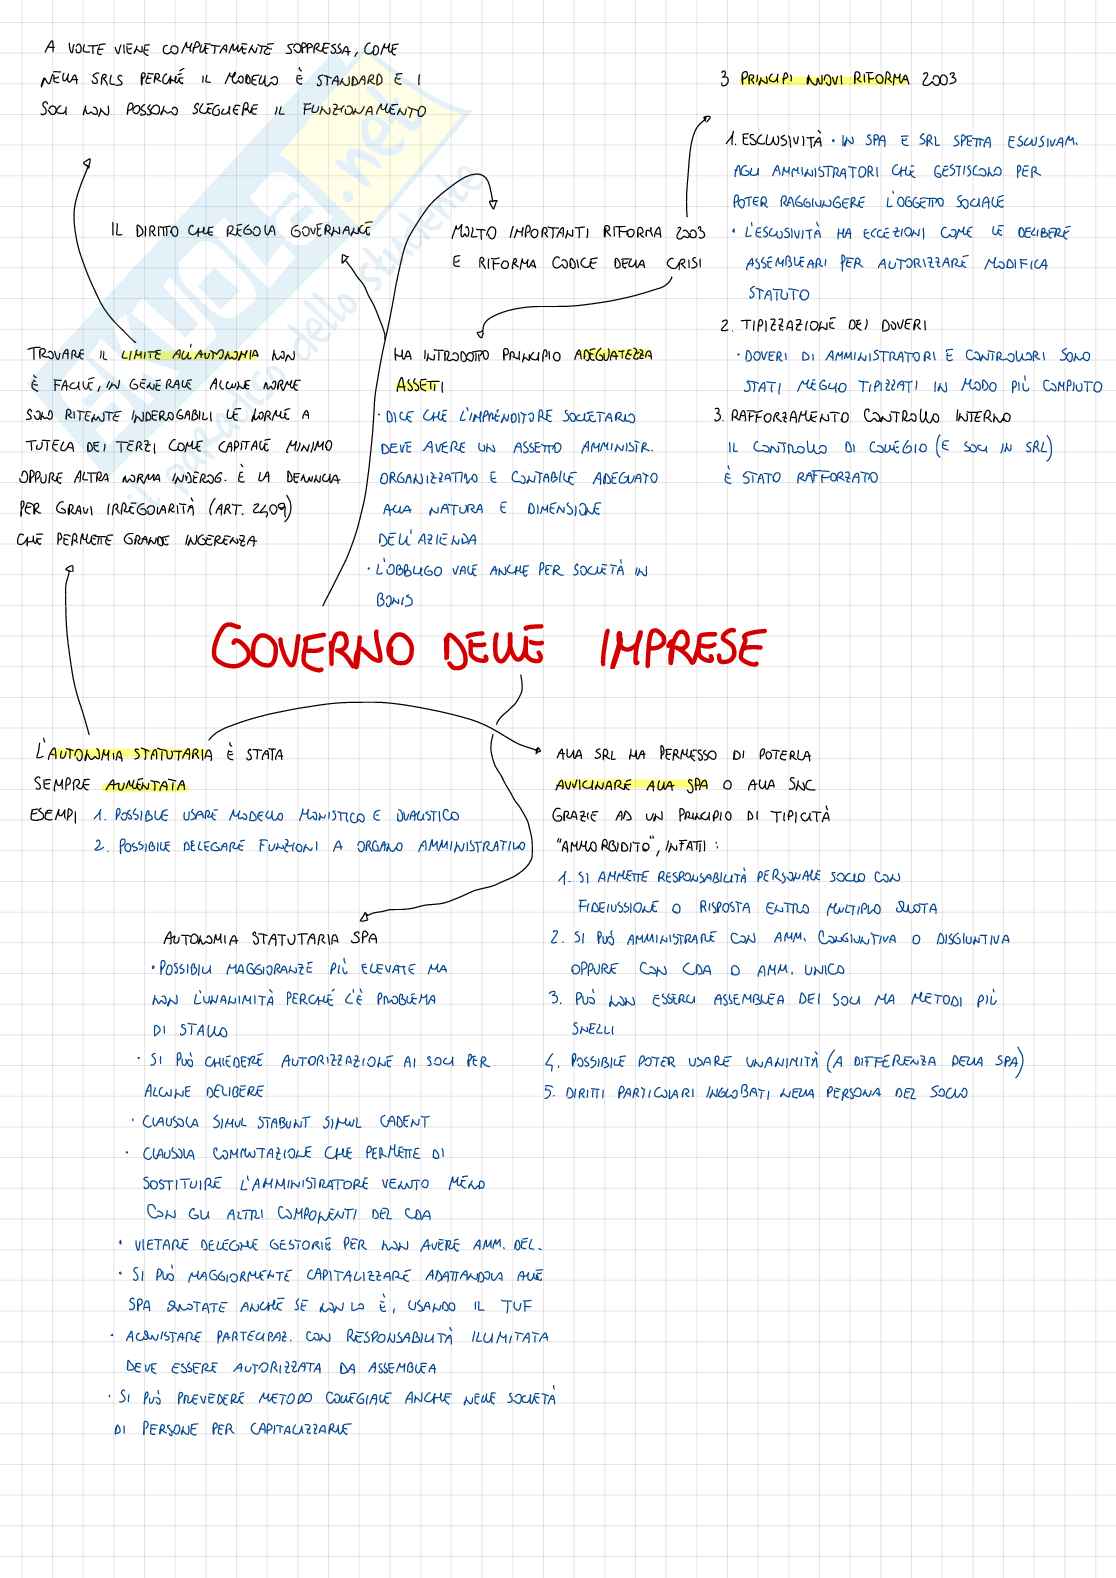 A VOLTE VIENE COMPLETAMENTE SOPPRESSA, COME
NELLA SRLS PERCHÉ IL MODELLO È STANDARD E I
SOCI NON POSSONO SCEGLIERE IL FUNZIONAMENTO
IL DIRITTO CHE REGOLA GOVERNANCE
MOLTO IMPORTANTI RIFORMA 2003
E RIFORMA CODICE DELLA CRISI
3 PRINCIPI NUOVI RIFORMA 2003
1. ESCLUSIVITÀ • IN SPA E SRL SPETTA ESCLUSIVAM.
AGLI AMMINISTRATORI CHE GESTISCONO PER
POTER RAGGIUNGERE L'OGGETTO SOCIALE
• L'ESCLUSIVITÀ HA ECCEZIONI COME LE DELIBERE
ASSEMBLEARI PER AUTORIZZARE MODIFICA
STATUTO
2. TIPIZZAZIONE DEI DOVERI
• DOVERI DI AMMINISTRATORI E CONTROLLORI SONO
STATI MEGLIO TIPIZZATI IN MODO PIÙ COMPIUTO
3. RAFFORZAMENTO CONTROLLO INTERNO
IL CONTROLLO DI COLLEGIO (E SOCI IN SRL)
È STATO RAFFORZATO
TROVARE IL LIMITE ALL'AUTONOMIA NON
È FACILE, IN GENERALE ALCUNE NORME
SONO RITENUTE INDEROGABILI LE NORME A
TUTELA DEI TERZI COME CAPITALE MINIMO
OPPURE ALTRA NORMA INDEROG. È LA DENUNCIA
PER GRAVI IRREGOLARITÀ (ART. 2409)
CHE PERMETTE GRANDE INGERENZA
HA INTRODOTTO PRINCIPIO ADEGUATEZZA
ASSETTI
• DICE CHE L'IMPRENDITORE SOCIETARIO
DEVE AVERE UN ASSETTO AMMINISTR.
ORGANIZZATIVO E CONTABILE ADEGUATO
ALLA NATURA E DIMENSIONE
DELL'AZIENDA
• L'OBBLIGO VALE ANCHE PER SOCIETÀ IN
BONIS
GOVERNO DELLE IMPRESE
L'AUTONOMIA STATUTARIA È STATA
SEMPRE AUMENTATA
ESEMPI 1. POSSIBILE USARE MODELLO MONISTICO E DUALISTICO
2. POSSIBILE DELEGARE FUNZIONI A ORGANO AMMINISTRATIVO
ALLA SRL HA PERMESSO DI POTERLA
AVVICINARE ALLA SPA O ALLA SNC
GRAZIE AD UN PRINCIPIO DI TIPICITÀ
"AMMORBIDITO", INFATTI:
1. SI AMMETTE RESPONSABILITÀ PERSONALE SOCIO CON
FIDEIUSSIONE O RISPOSTA ENTRO MULTIPLO QUOTA
2. SI PUÒ AMMINISTRARE CON AMM. CONGIUNTIVA O DISGIUNTIVA
OPPURE CON CDA O AMM. UNICO
3. PUÒ NON ESSERCI ASSEMBLEA DEI SOCI MA METODI PIÙ
SNELLI
4. POSSIBILE POTER USARE UNANIMITÀ (A DIFFERENZA DELLA SPA)
5. DIRITTI PARTICOLARI INGLOBATI NELLA PERSONA DEL SOCIO
AUTONOMIA STATUTARIA SPA
• POSSIBILI MAGGIORANZE PIÙ ELEVATE MA
NON L'UNANIMITÀ PERCHÉ C'È PROBLEMA
DI STALLO
• SI PUÒ CHIEDERE AUTORIZZAZIONE AI SOCI PER
ALCUNE DELIBERE
• CLAUSOLA SIMUL STABUNT SIMUL CADENT
• CLAUSOLA COMMUTAZIONE CHE PERMETTE DI
SOSTITUIRE L'AMMINISTRATORE VENUTO MENO
CON GLI ALTRI COMPONENTI DEL CDA
• VIETARE DELEGHE GESTORIE PER NON AVERE AMM. DEL.
• SI PUÒ MAGGIORMENTE CAPITALIZZARE ADATTANDOLA ALLE
SPA QUOTATE ANCHE SE NON LO È, USANDO IL TUF
• ACQUISTARE PARTECIPAZ. CON RESPONSABILITÀ ILLIMITATA
DEVE ESSERE AUTORIZZATA DA ASSEMBLEA
• SI PUÒ PREVEDERE METODO COLLEGIALE ANCHE NELLE SOCIETÀ
DI PERSONE PER CAPITALIZZARLE